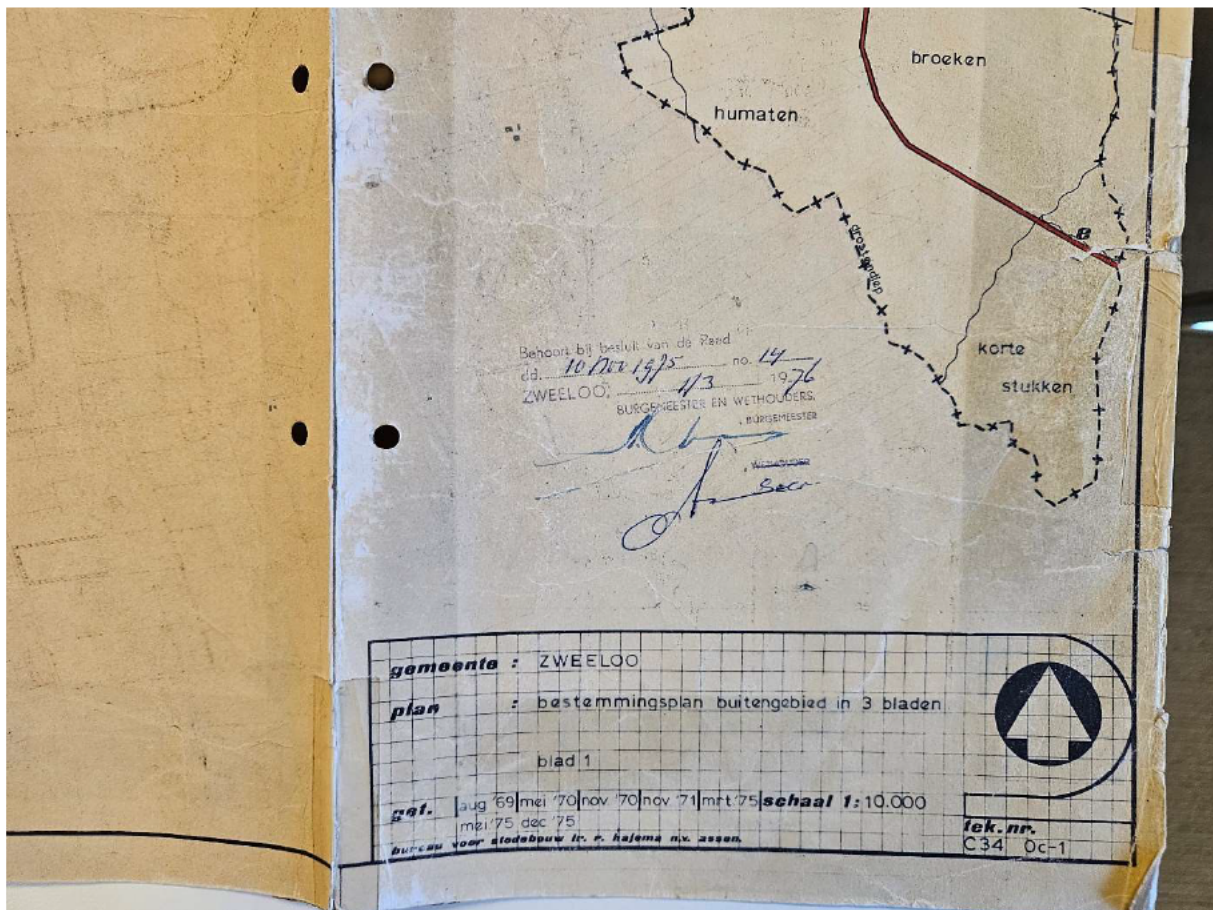 broeken
humaten
B
drostendiep
korte
stukken
Behoort bij besluit van de Raad
dd. 10 nov 1975 no. 14
ZWEELOO, 1/3 1976
BURGEMEESTER EN WETHOUDERS,
, BURGEMEESTER
, WETHOUDER
Secr
gemeente : ZWEELOO
plan : bestemmingsplan buitengebied in 3 bladen
blad 1
get. aug '69 mei '70 nov '70 nov '71 mrt '75 schaal 1: 10.000
mei '75 dec '75
bureau voor stedebouw ir. r. hajema n.v. assen.
tek. nr.
C34 0c-1